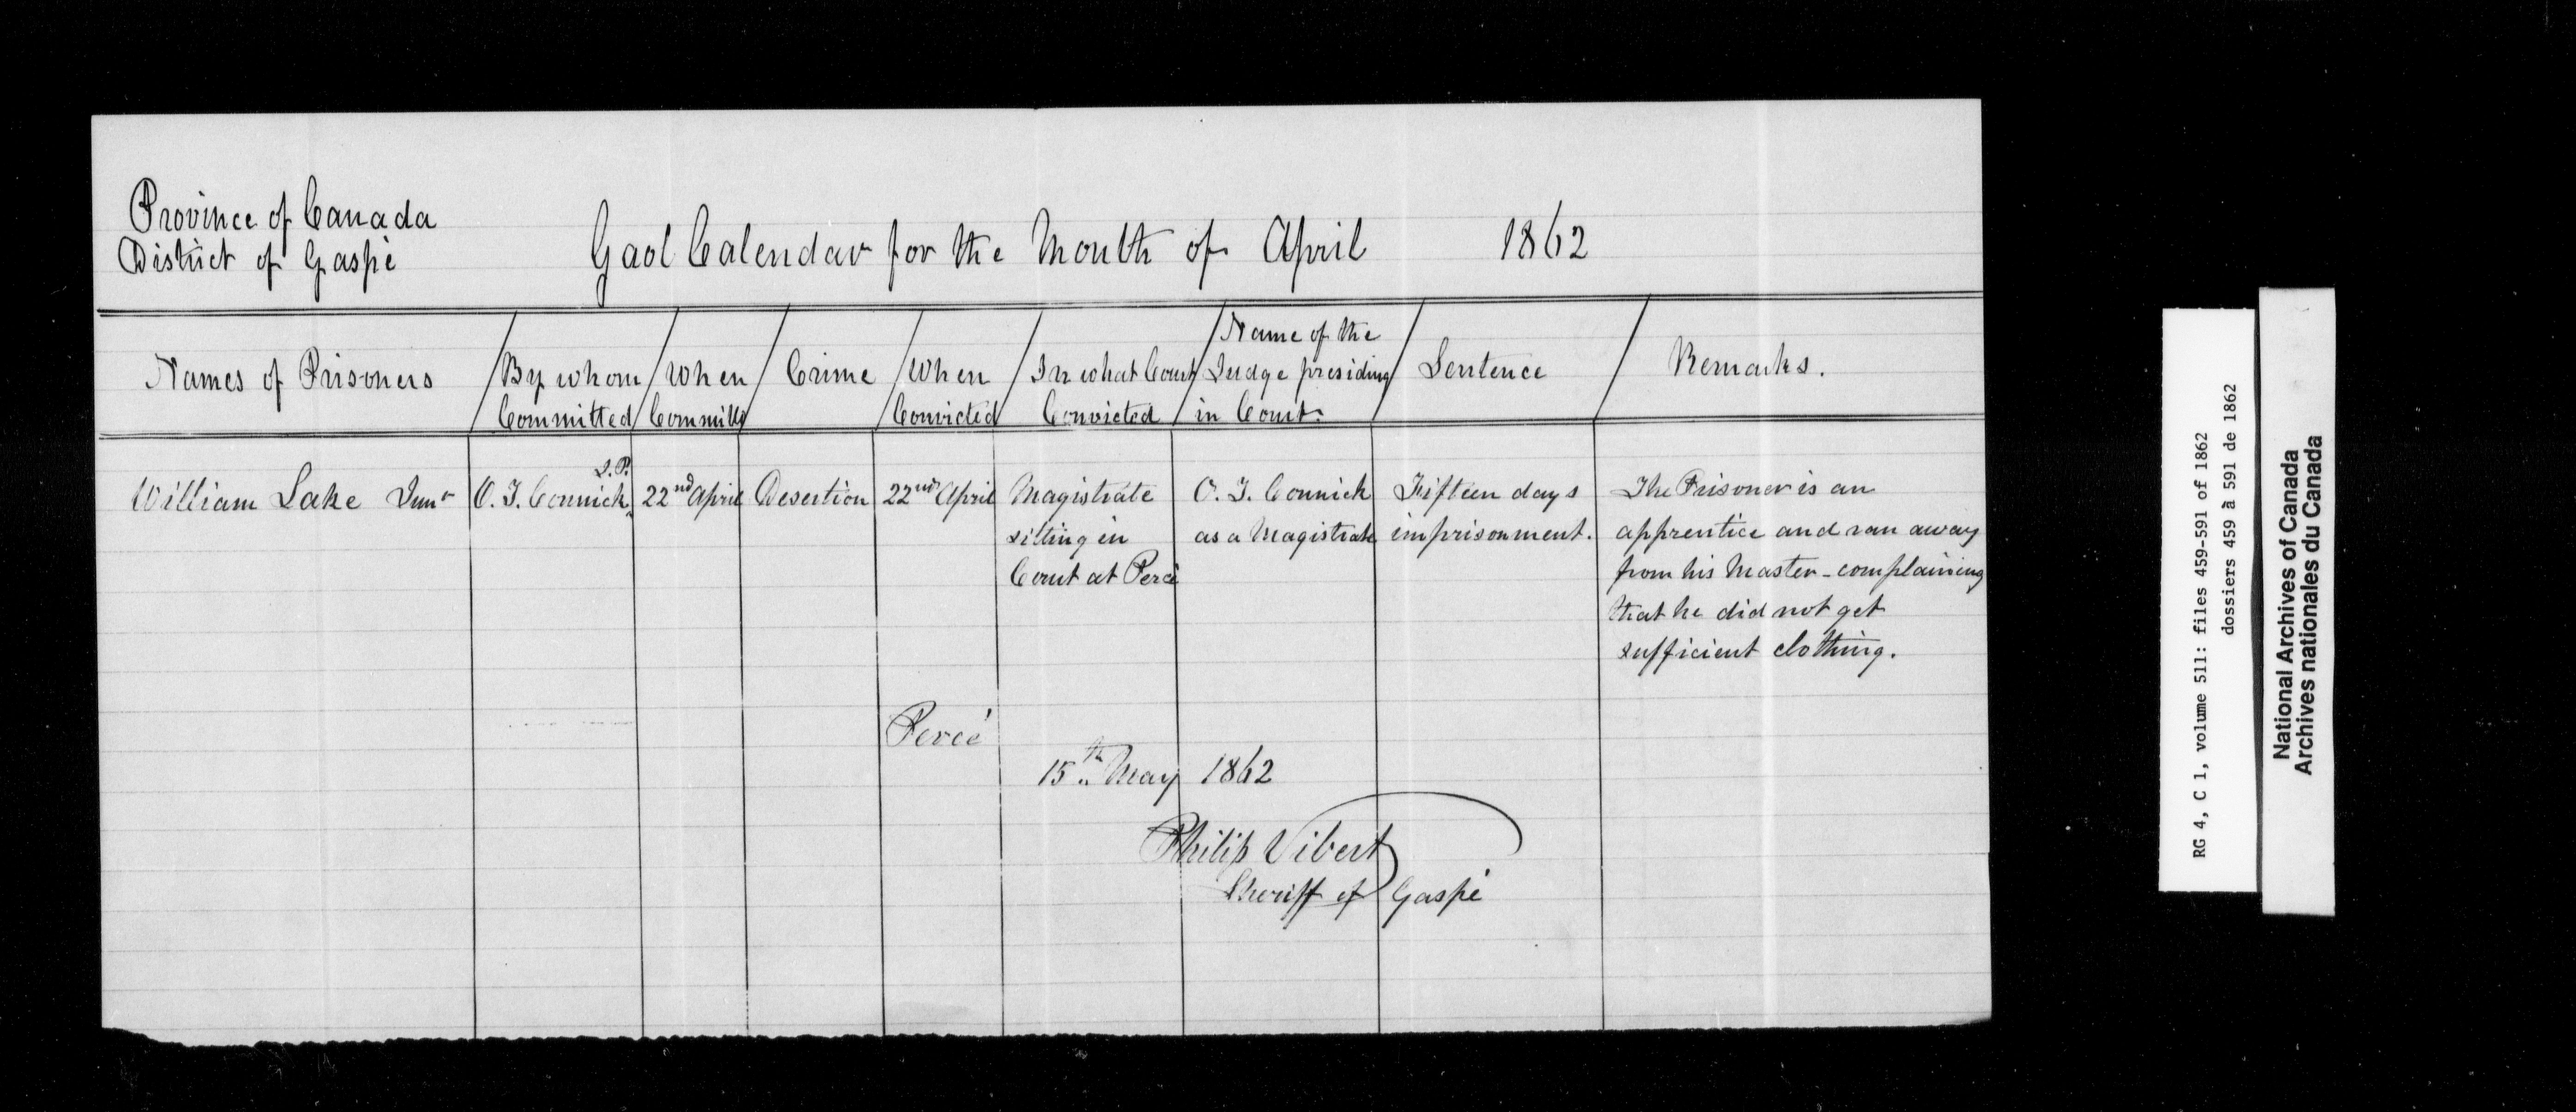 Province of Canada
District of Gaspé
Gaol Calendar for the Month of April 1862
Names of Prisoners
By whom Committed
When Committd
Crime
When Convicted
In what Court Convicted
Name of the Judge presiding in Court.
Sentence
Remarks.
William Lake Junr
O. J. Connick
22nd April
Desertion
22nd April
Magistrate
sitting in
Court at Percé
O. J. Connick
as a Magistrate
Fifteen days
imprisonment.
The Prisoner is an
apprentice and ran away
from his Master - complaining
that he did not get
sufficient clothing.
Percé
15th May 1862
Philip Vibert
Sheriff of Gaspé
RG 4, C 1, volume 511: files 459-591 of 1862
dossiers 459 à 591 de 1862
National Archives of Canada
Archives nationales du Canada